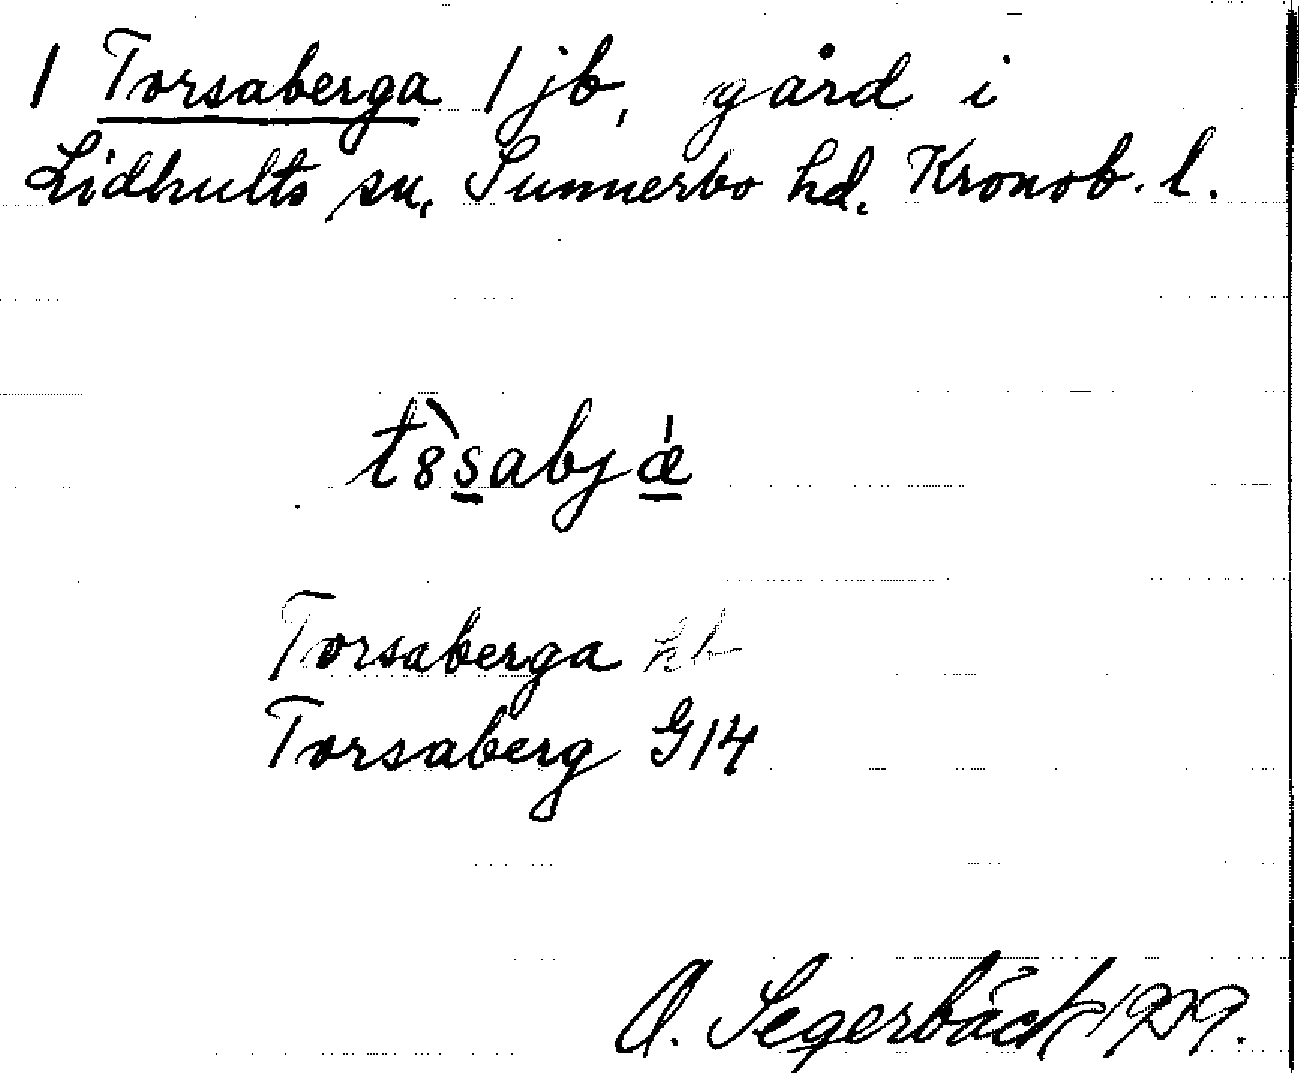 1 Torsaberga 1 jb, gård i
Lidhults sn, Sunnerbo hd. Kronob. l.
t8̀sabjǽ
Torsaberga kb
Torsaberg G14
A. Segerbäck 1929.